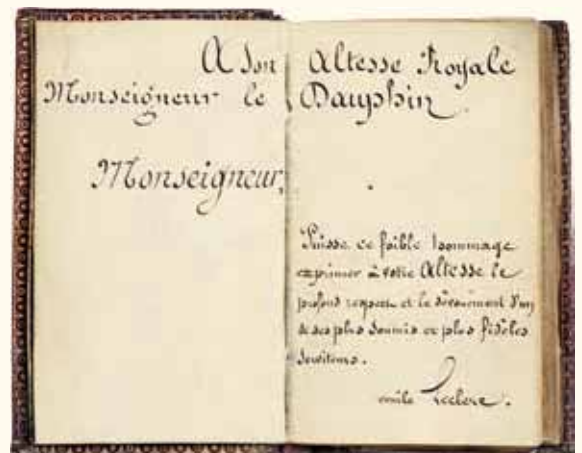 A Son Altesse Royale
Monseigneur le Dauphin
Monseigneur,
Puisse ce foible hommage
exprimer à votre Altesse le
profond respect et le dévouement d'un
de ses plus soumis et plus fidèles
serviteurs.
émile Leclerc.